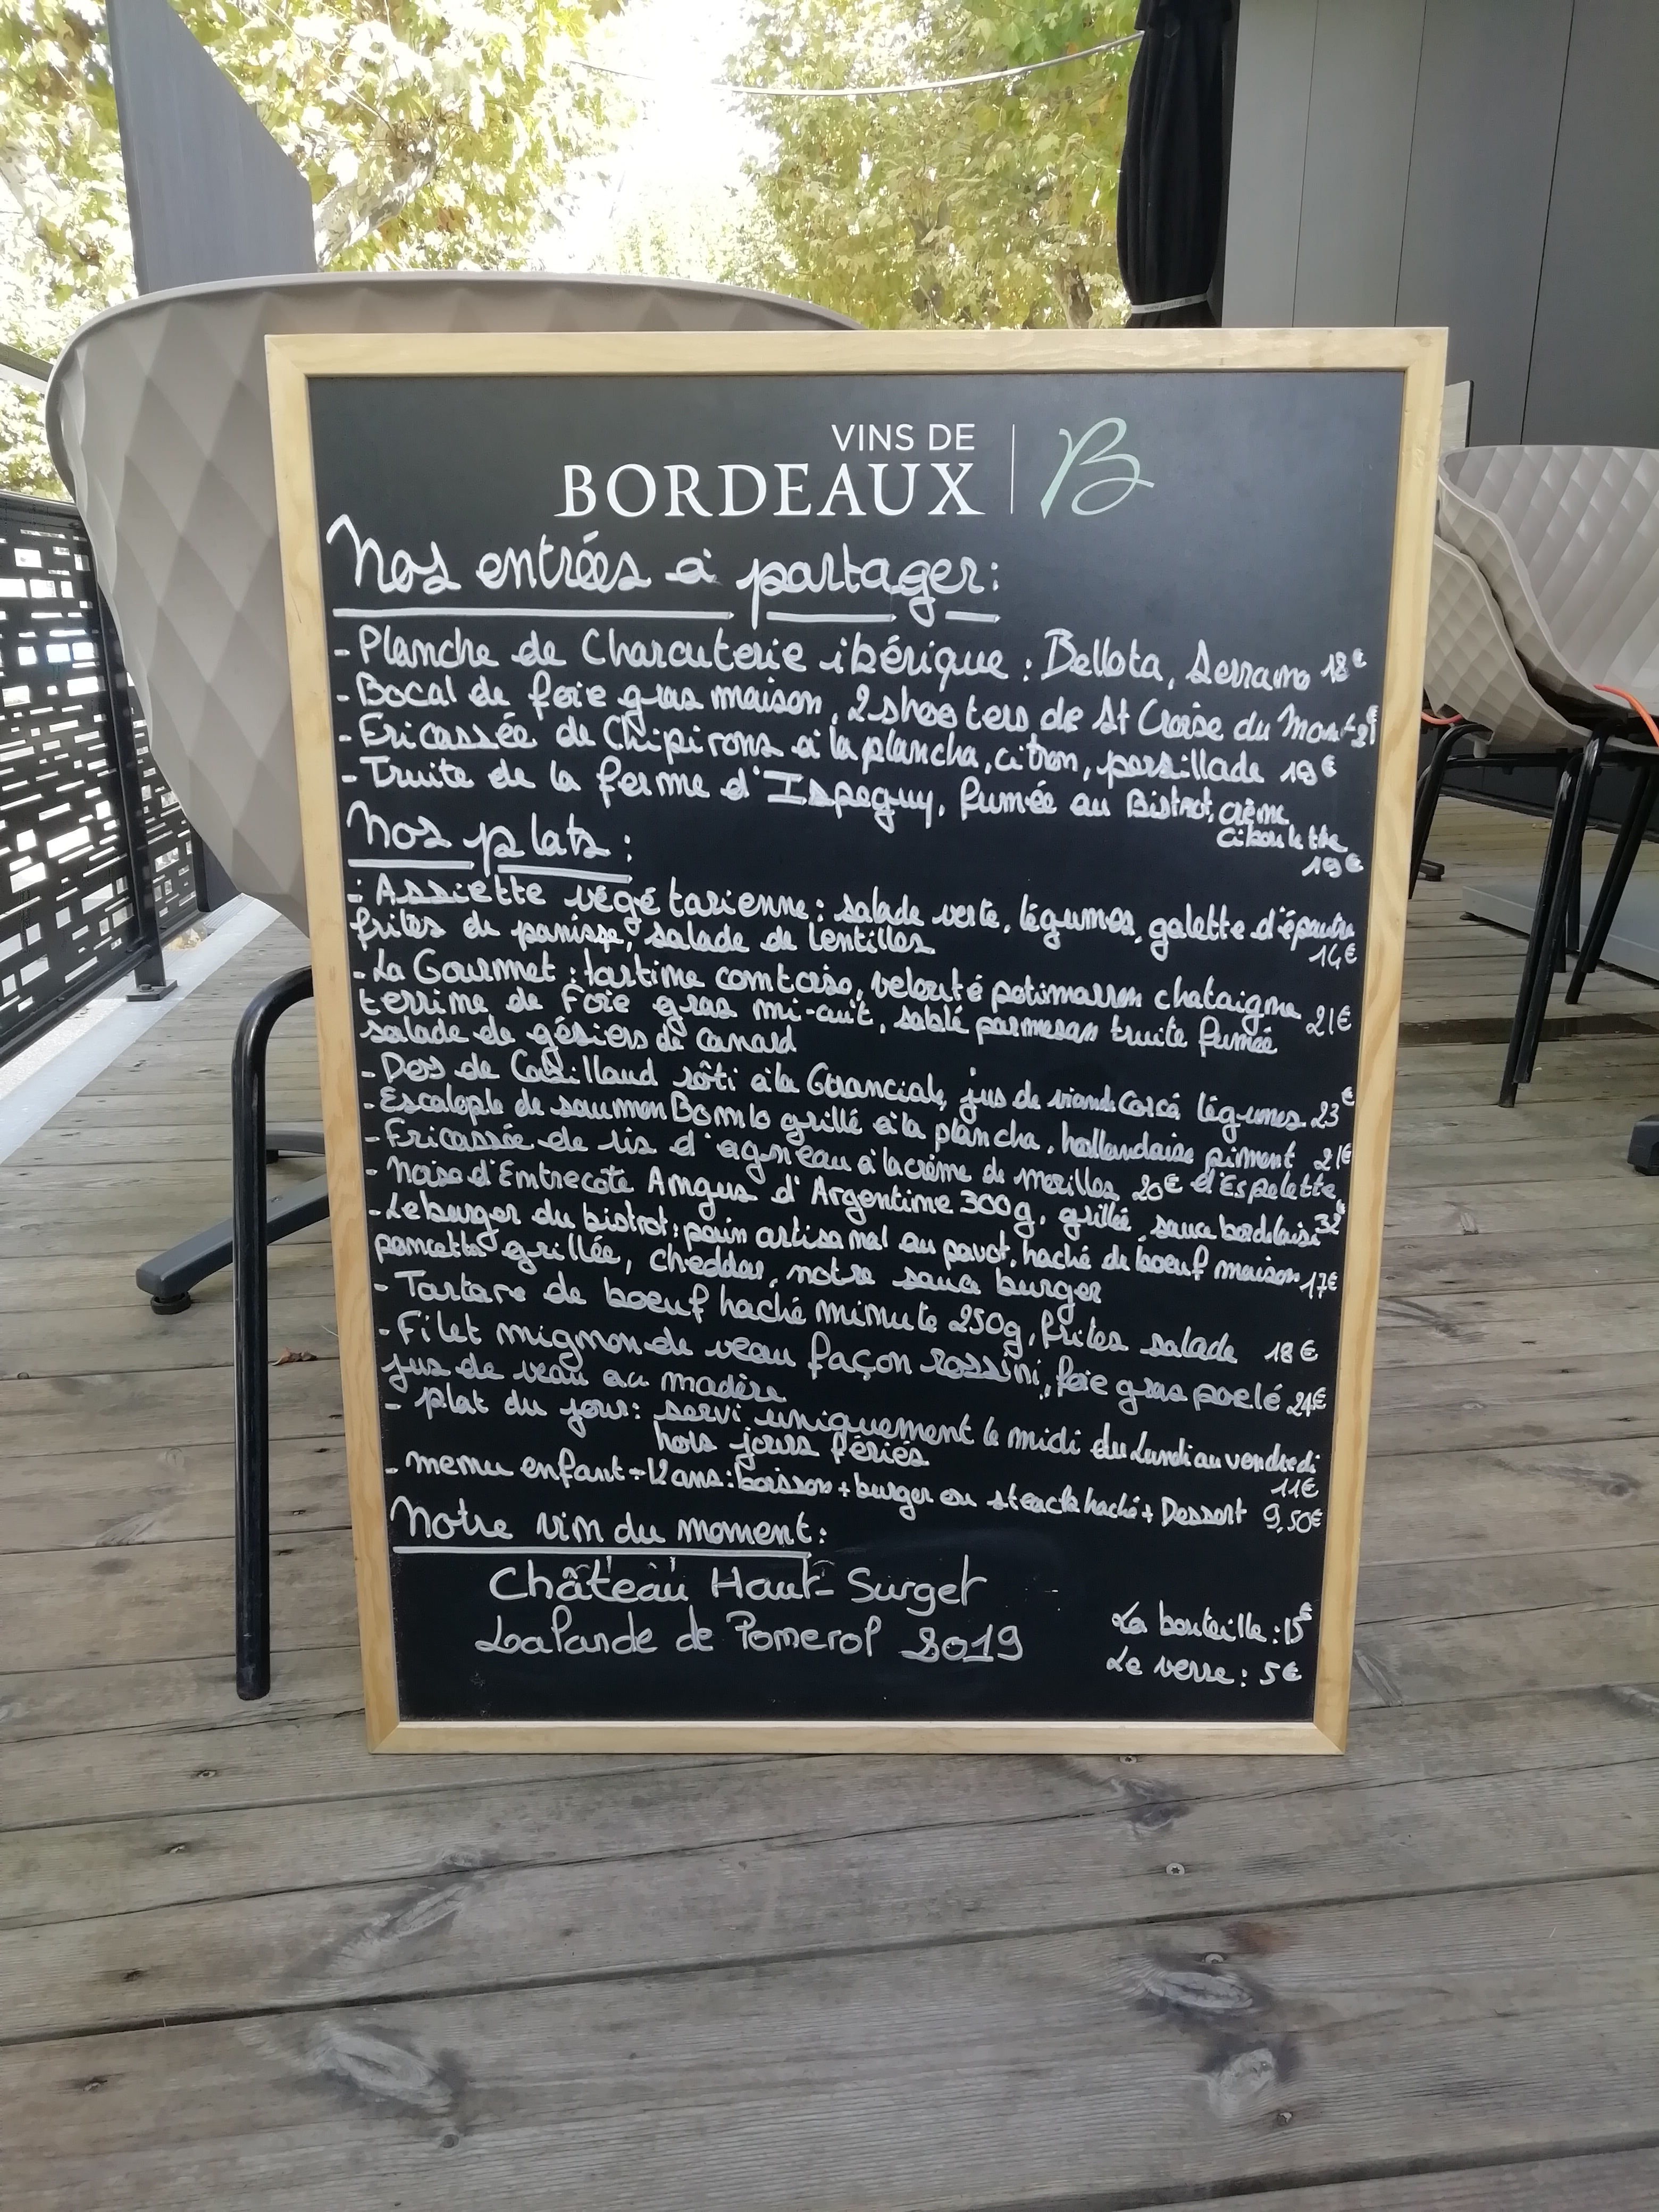 VINS DE
BORDEAUX
B
Nos entrées à partager:
- Planche de Charcuterie ibérique : Bellota, Serrano 18€
- Bocal de foie gras maison, 2 shooters de St Croise du Mont 21€
- Fricassée de Chipirons à la plancha, citron, persillade 19€
- Truite de la ferme d'Ispeguy, fumée au Bistrot, crème
ciboulette
19€
Nos plats :
- Assiette végétarienne : salade verte, légumes, galette d'épautre
frites de panisse, salade de lentilles 14€
- La Gourmet : tartine comtoise, velouté potimarron chataigne
terrine de Foie gras mi-cuit, sablé parmesan truite fumée 21€
salade de gésiers de canard
- Dos de Cabillaud rôti à la Goranciale, jus de viande Corsé légumes 23€
- Escalople de saumon Bomlo grillé à la plancha, hollandaise piment 21€
- Fricassée de ris d'agneau à la crème de morilles 20€ d'Espelette
- Noise d'Entrecote Angus d'Argentine 300g, grillée, sauce bordelaise 32€
- Le burger du bistrot : pain artisanal au pavot, haché de boeuf maison
pancetta grillée, cheddar, notre sauce burger 17€
- Tartare de boeuf haché minute 250g, frites salade 18€
- Filet mignon de veau façon rossini, foie gras poelé 24€
jus de veau au madère
- plat du jour: servi uniquement le midi du Lundi au vendredi
hors jours fériés 11€
- menu enfant -12ans: boisson + burger ou steack haché + Dessert 9,50€
Notre vin du moment:
Château Haut-Surget
Lalande de Pomerol 2019
La bouteille : 15€
Le verre : 5€